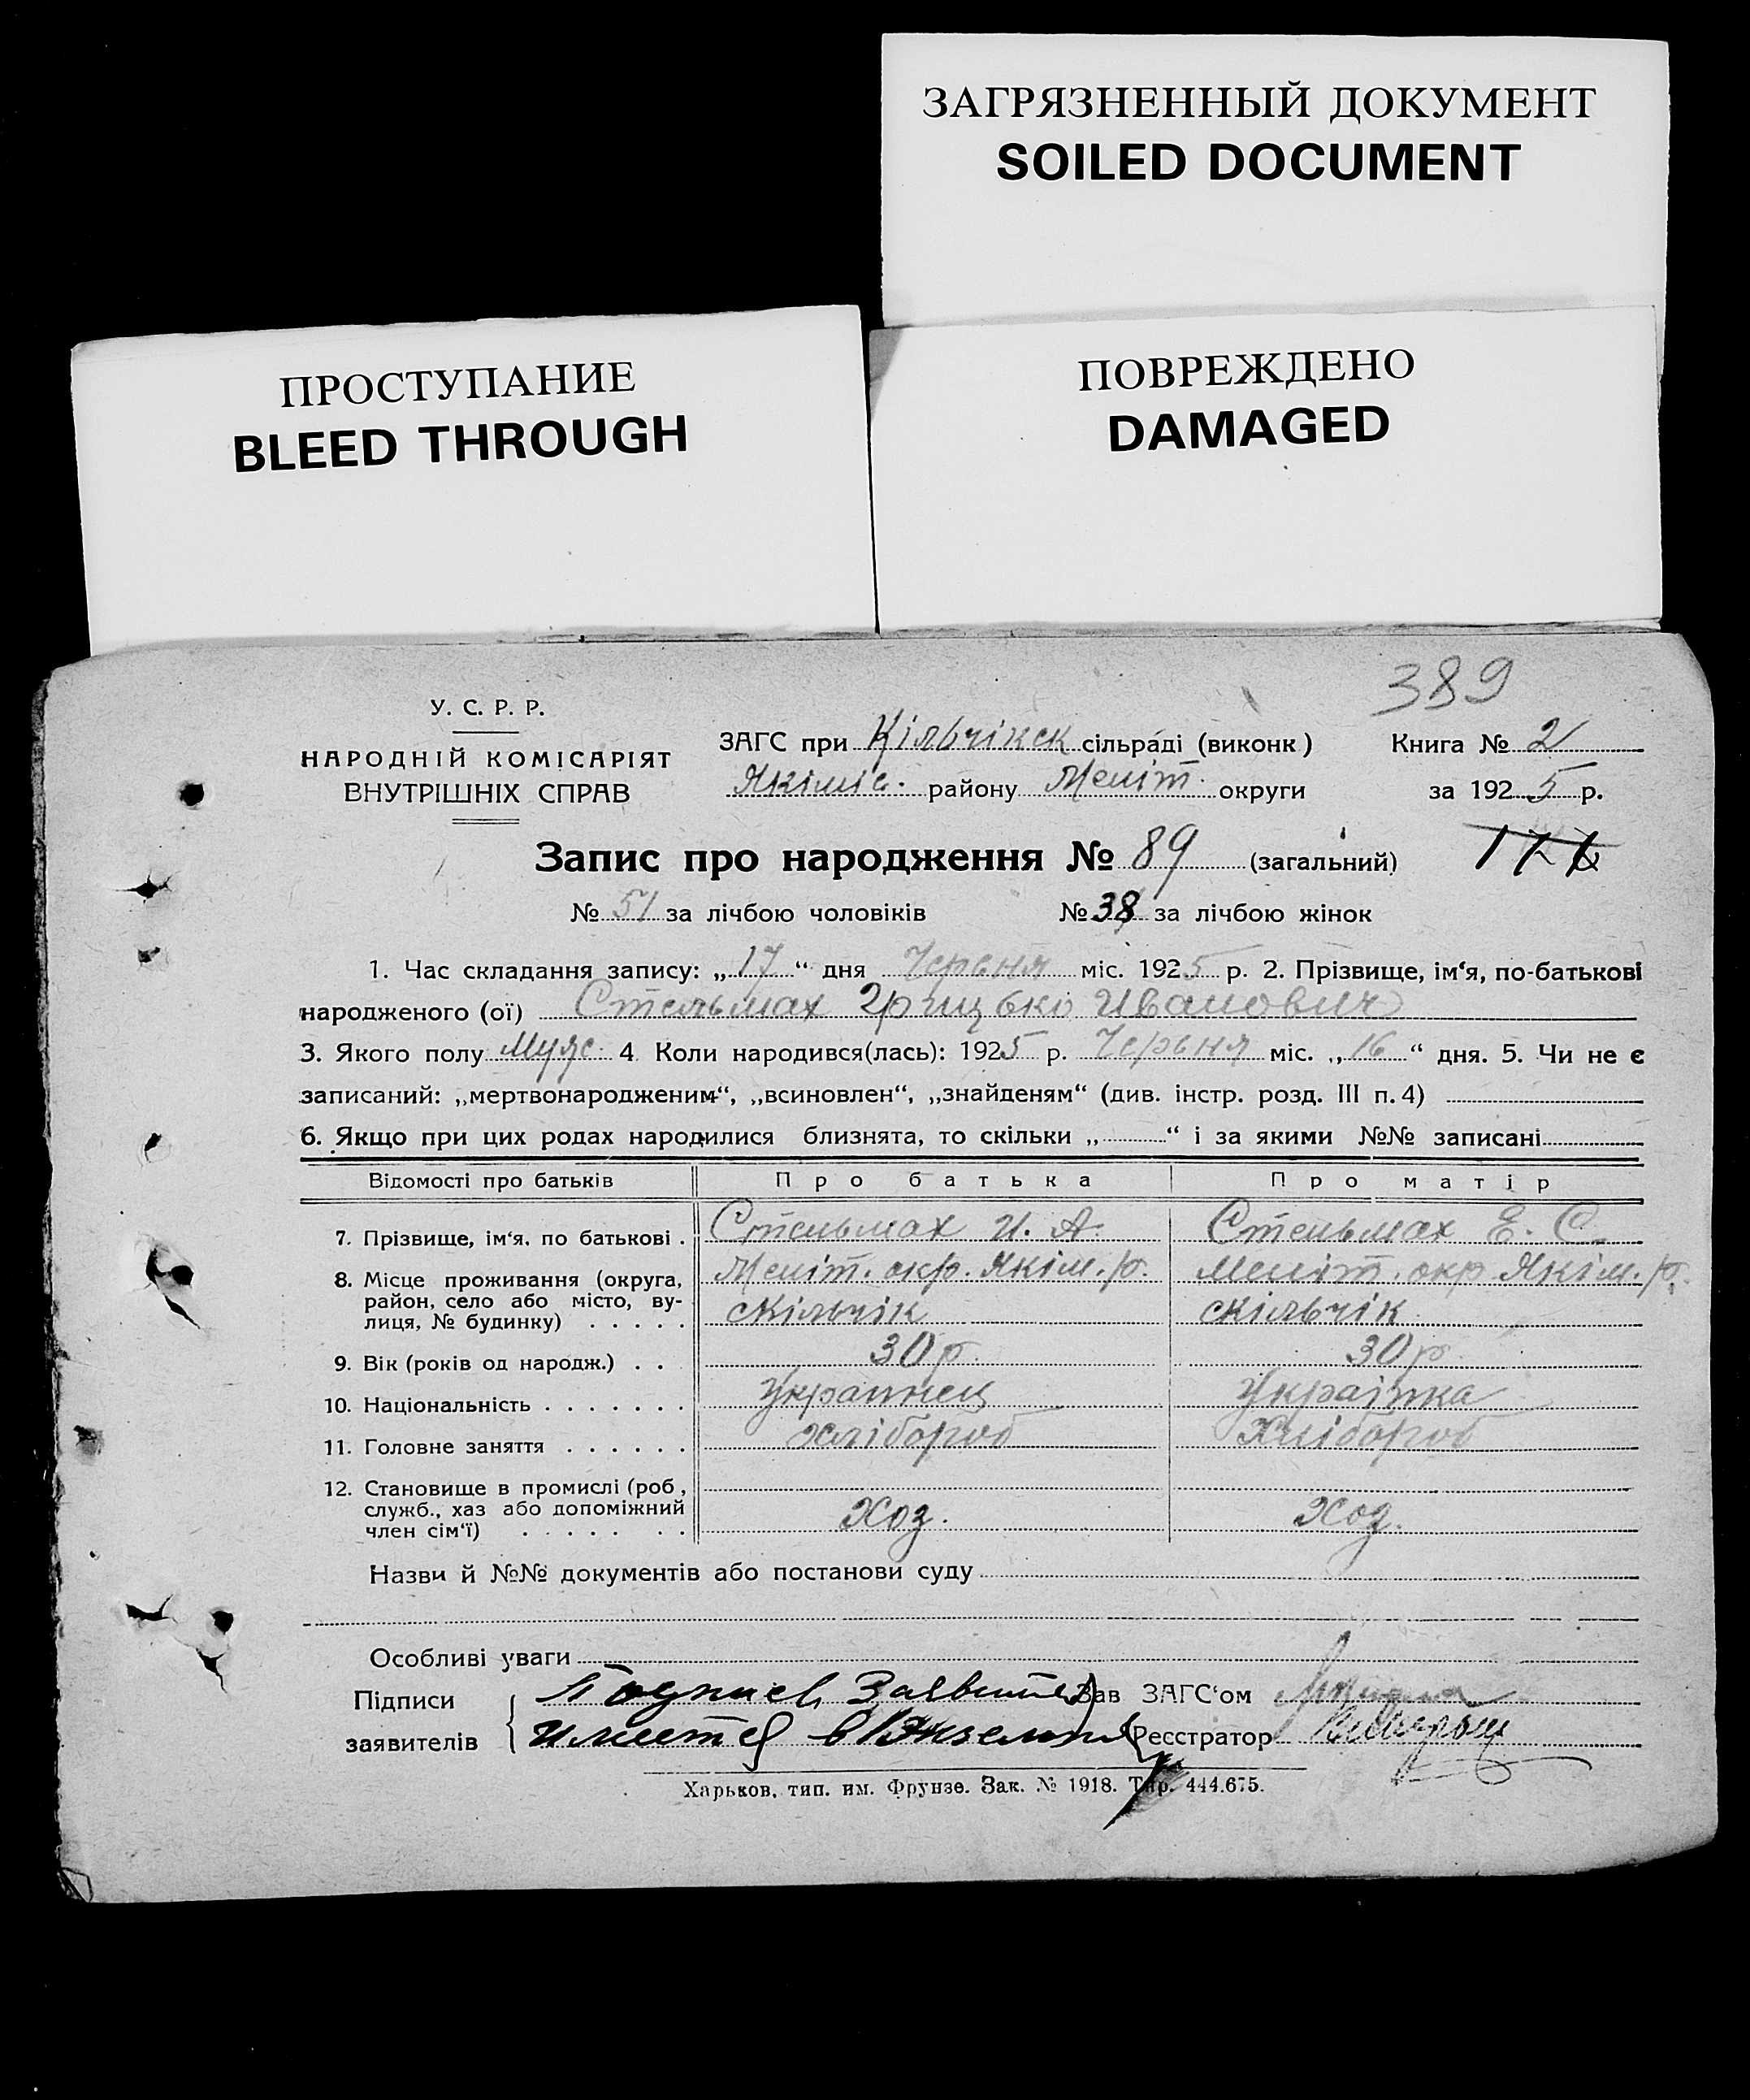 ЗАГРЯЗНЕННЫЙ ДОКУМЕНТ
SOILED DOCUMENT
ПРОСТУПАНИЕ
BLEED THROUGH
ПОВРЕЖДЕНО
DAMAGED
389
У. С. Р. Р.
НАРОДНІЙ КОМІСАРІЯТ
ВНУТРІШНІХ СПРАВ
ЗАГС при Кільчікск сільраді (виконк) Книга № 2
Якімів. району Меліт. округи за 1925 р.
Запис про народження № 89 (загальний)
№ 51 за лічбою чоловіків № 38 за лічбою жінок
1. Час складання запису: „17“ дня Червня міс. 1925 р. 2. Прізвище, ім‘я, по-батькові
народженого (ої) Стельмах Грицько Иванович
3. Якого полу Мужс. 4 Коли народився(лась): 1925 р. Червня міс. „16“ дня. 5. Чи не є
записаний: „мертвонародженим“, „всиновлен“, „знайденям“ (див. інстр. розд. III п. 4)
6. Якщо при цих родах народилися близнята, то скільки „ “ і за якими №№ записані
Відомості про батьків Про батька Про матір
7. Прізвище, ім‘я, по батькові . Стельмах И. А. Стельмах Е. С.
8. Місце проживання (округа, Меліт. окр. Якім. р. Меліт. окр Якім. р.
район, село або місто, ву-
лиця, № будинку) . . . . . с Кільчік с Кільчік
9. Вік (років од народж.) . . 30 р. 30 р.
10. Національність . . . . . . . Украинец Украінка
11. Головне заняття . . . . . . Хлібороб Хлібороб
12. Становище в промислі (роб ,
служб., хаз або допоміжний Хоз. Хоз.
член сім‘ї) . . . . . . .
Назви й №№ документів або постанови суду
Особливі уваги
Підписи Подписи Заявител Зав ЗАГС‘ом
заявителів имеется в Реєстратор
Харьков, тип. им. Фрунзе. Зак. № 1918. Тир. 444.675.